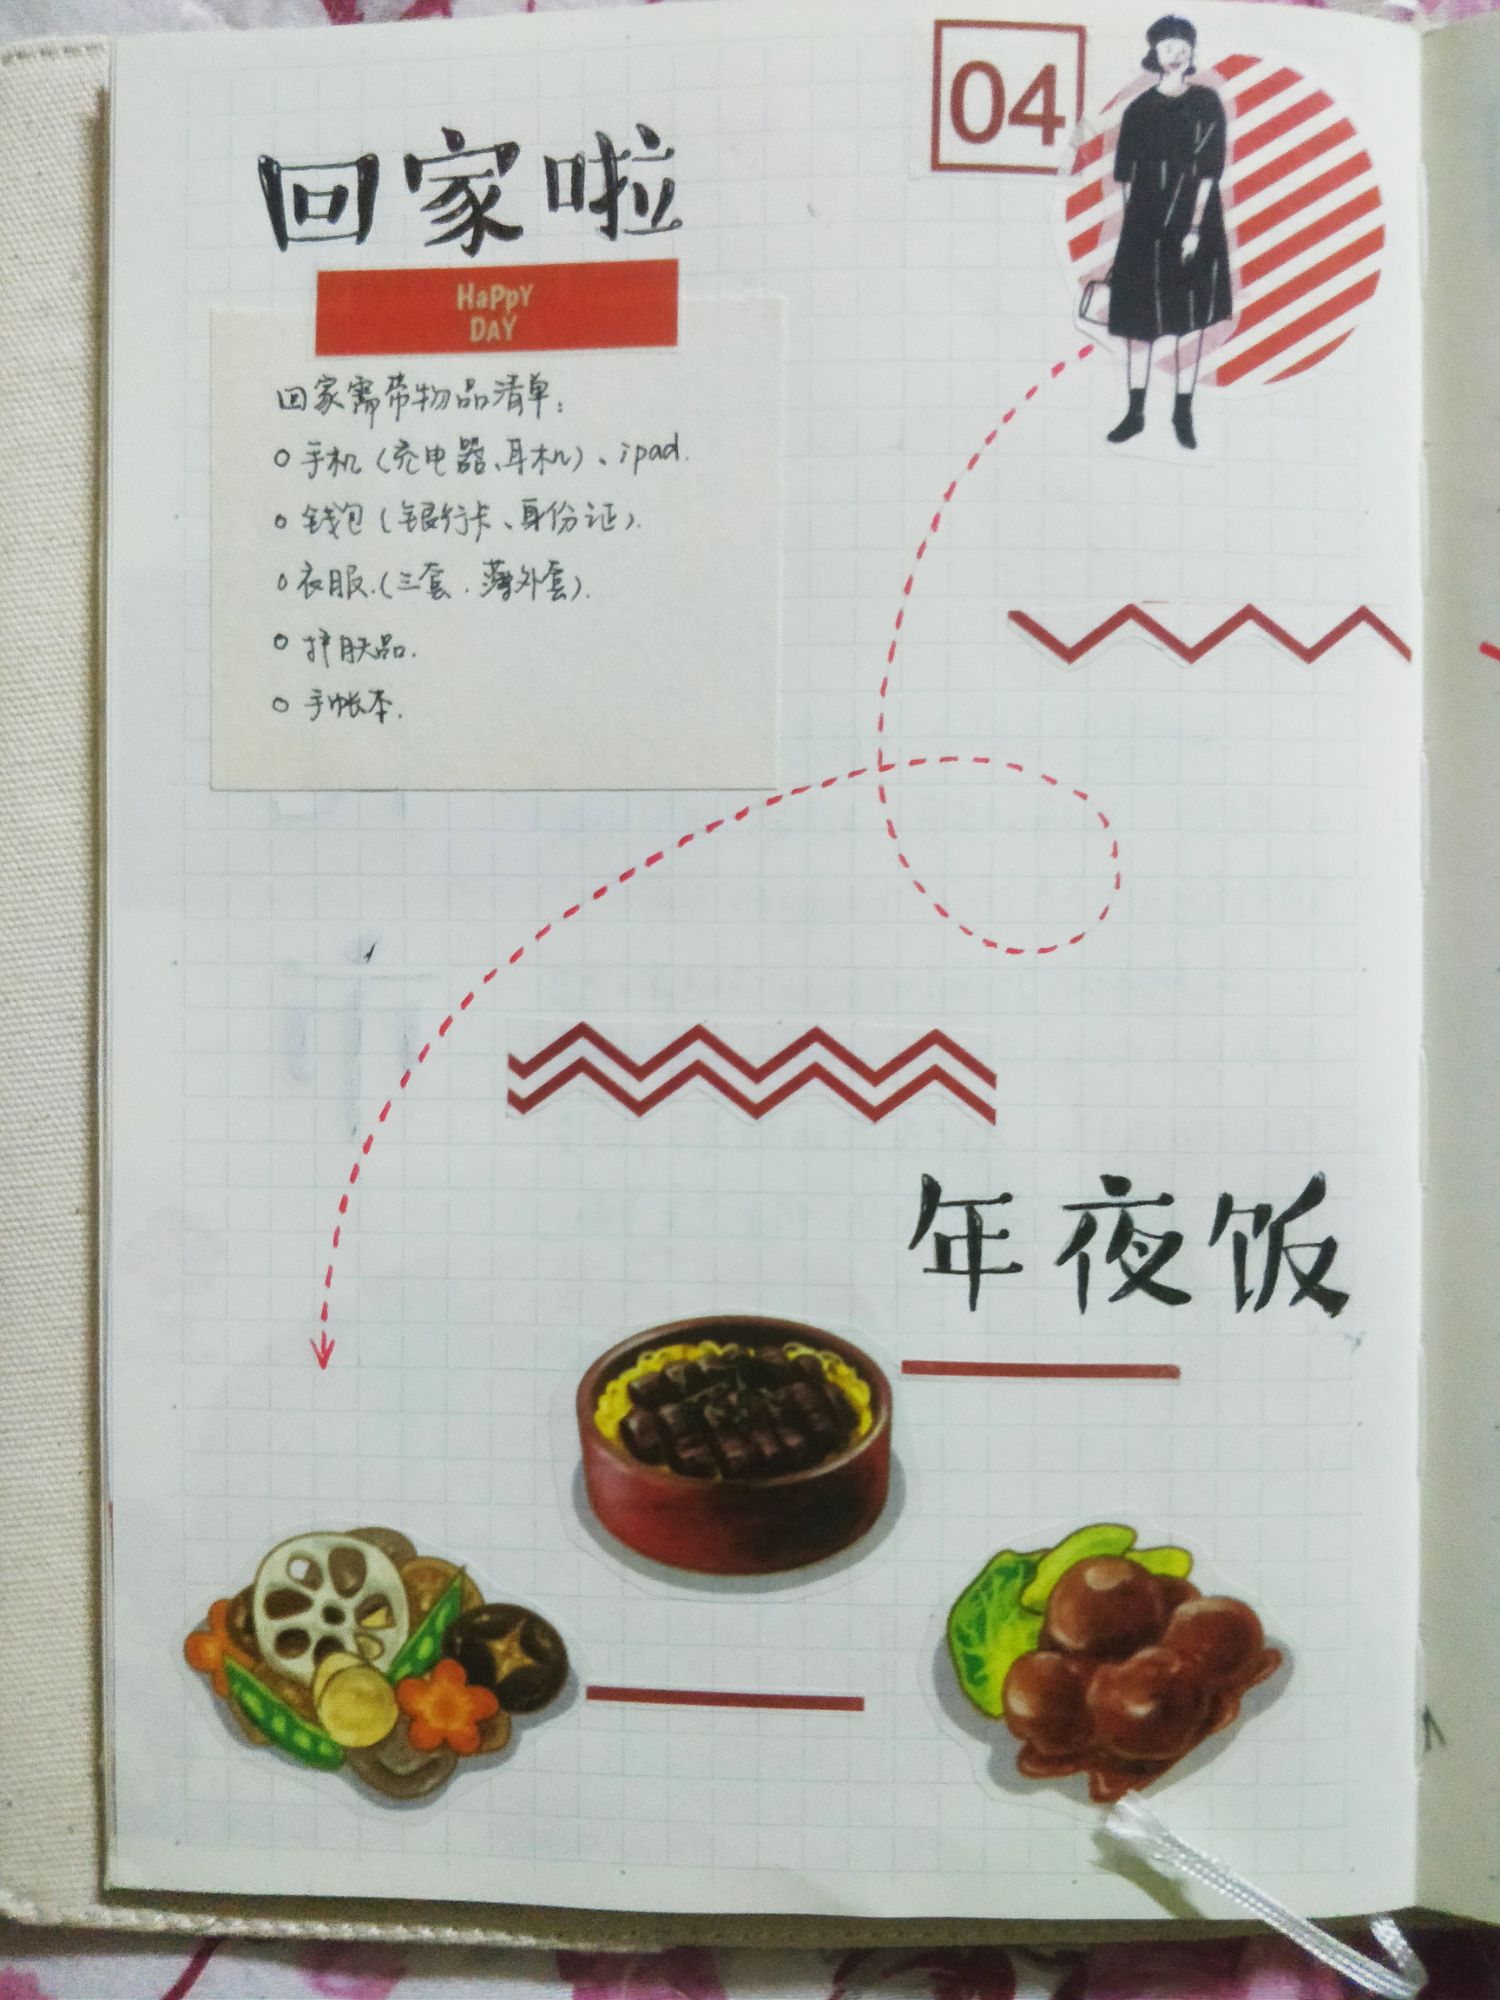 04
回家啦
HaPpY
DAY
回家需带物品清单:
手机(充电器、耳机)、ipad.
钱包(银行卡、身份证).
衣服.(三套.薄外套).
护肤品.
手帐本.
年夜饭